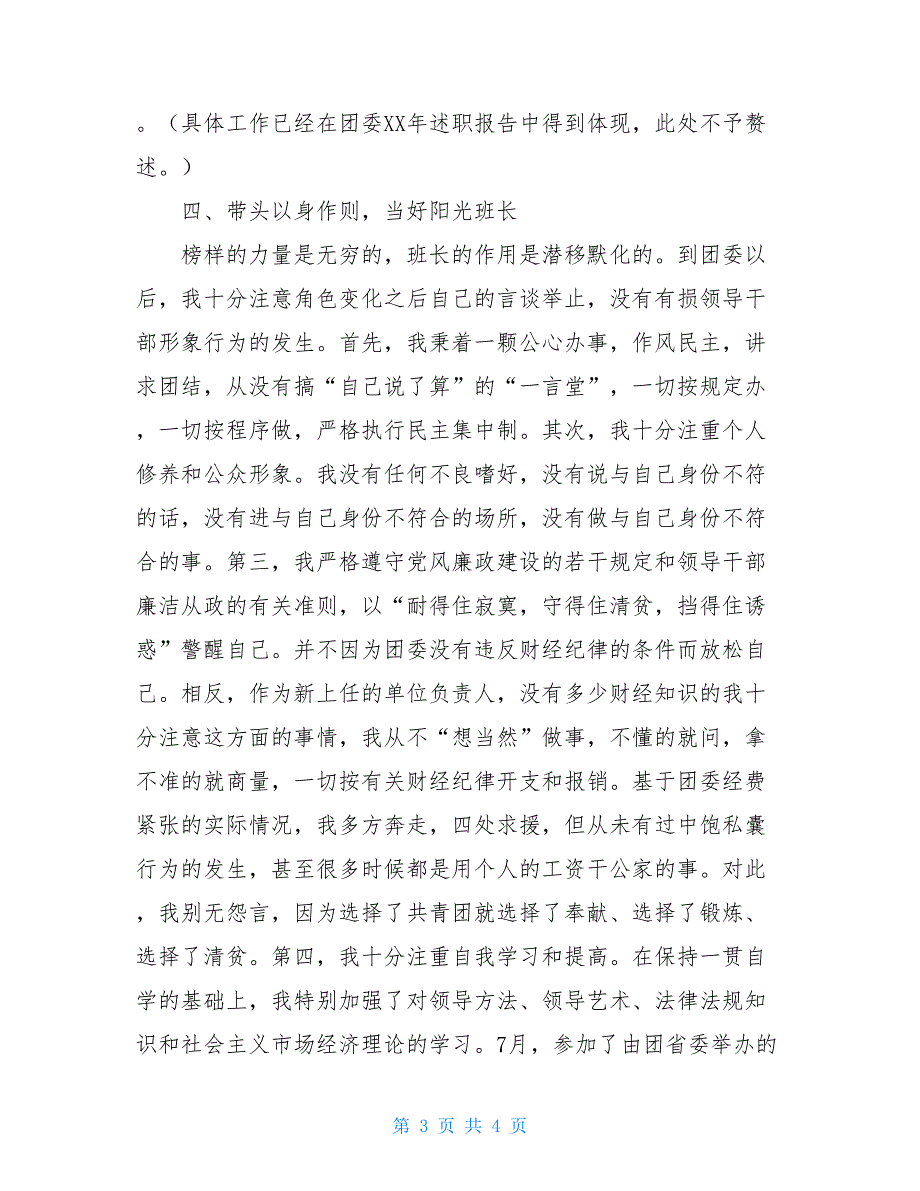 。（具体工作已经在团委XX年述职报告中得到体现，此处不予赘
述。）
四、带头以身作则，当好阳光班长
榜样的力量是无穷的，班长的作用是潜移默化的。到团委以
后，我十分注意角色变化之后自己的言谈举止，没有有损领导干
部形象行为的发生。首先，我秉着一颗公心办事，作风民主，讲
求团结，从没有搞“自己说了算”的“一言堂”，一切按规定办
，一切按程序做，严格执行民主集中制。其次，我十分注重个人
修养和公众形象。我没有任何不良嗜好，没有说与自己身份不符
的话，没有进与自己身份不符合的场所，没有做与自己身份不符
合的事。第三，我严格遵守党风廉政建设的若干规定和领导干部
廉洁从政的有关准则，以“耐得住寂寞，守得住清贫，挡得住诱
惑”警醒自己。并不因为团委没有违反财经纪律的条件而放松自
己。相反，作为新上任的单位负责人，没有多少财经知识的我十
分注意这方面的事情，我从不“想当然”做事，不懂的就问，拿
不准的就商量，一切按有关财经纪律开支和报销。基于团委经费
紧张的实际情况，我多方奔走，四处求援，但从未有过中饱私囊
行为的发生，甚至很多时候都是用个人的工资干公家的事。对此
，我别无怨言，因为选择了共青团就选择了奉献、选择了锻炼、
选择了清贫。第四，我十分注重自我学习和提高。在保持一贯自
学的基础上，我特别加强了对领导方法、领导艺术、法律法规知
识和社会主义市场经济理论的学习。7月，参加了由团省委举办的
第 3 页 共 4 页